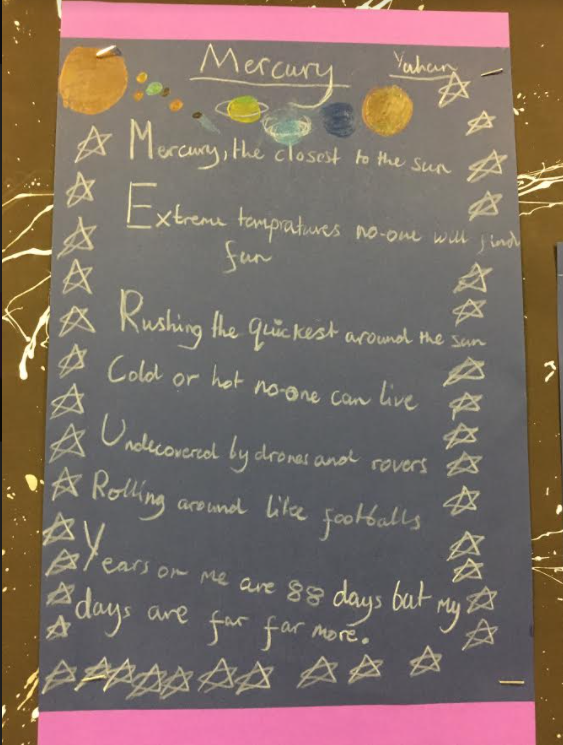 Mercury
Yahan
Mercury, the closest to the sun
Extreme tempratures no-one will find
fun
Rushing the quickest around the sun
Cold or hot no-one can live
Undecovered by drones and rovers
Rolling around like footballs
Years on me are 88 days but my
days are far far more.